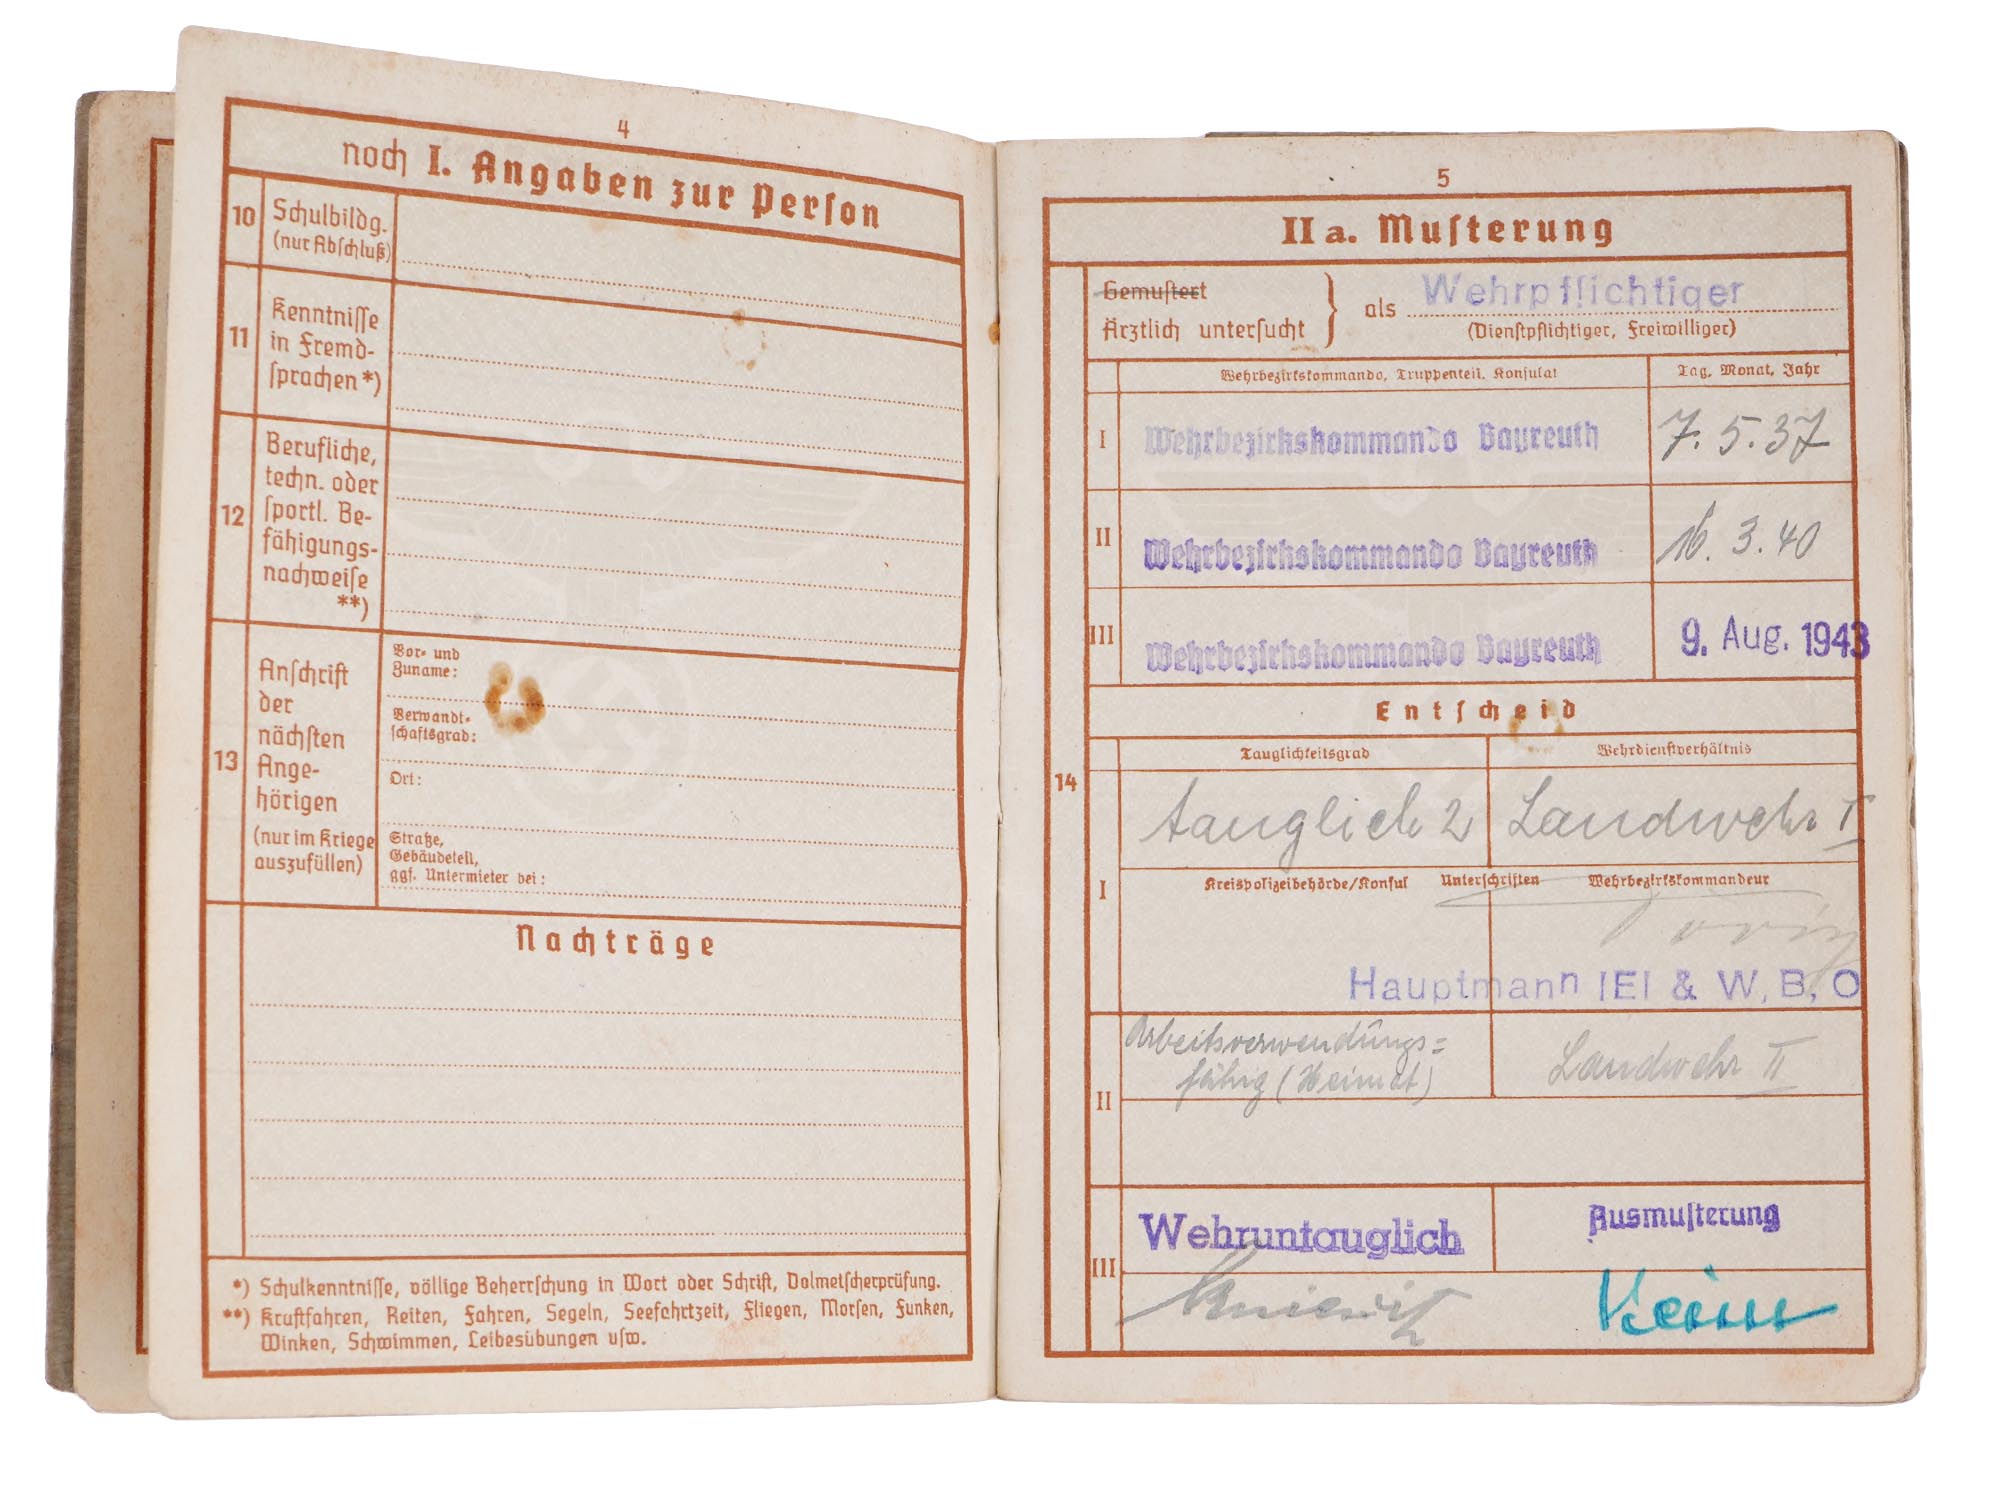 4
noch I. Angaben zur Perſon
10
Schulbildg.
(nur Abſchluß)
11
Kenntniſſe
in Fremd-
ſprachen *)
12
Berufliche,
techn. oder
ſportl. Be-
fähigungs-
nachweiſe
**)
13
Anſchrift
der
nächſten
Ange-
hörigen
(nur im Kriege
auszufüllen)
Vor- und
Zuname:
Verwandt-
ſchaftsgrad:
Ort:
Straße,
Gebäudeteil,
ggſ. Untermieter bei:
Nachträge
*) Schulkenntniſſe, völlige Beherrſchung in Wort oder Schrift, Dolmetſcherprüfung.
**) Kraftfahren, Reiten, Fahren, Segeln, Seefahrtzeit, Fliegen, Morſen, Funken,
Winken, Schwimmen, Leibesübungen uſw.
5
II a. Muſterung
Gemuſtert
Ärztlich unterſucht
als Wehrpflichtiger
(Dienſtpflichtiger, Freiwilliger)
Wehrbezirkskommando, Truppenteil, Konſulat
Tag, Monat, Jahr
I Wehrbezirkskommando Bayreuth 7. 5. 37
II Wehrbezirkskommando Bayreuth 16. 3. 40
III Wehrbezirkskommando Bayreuth 9. Aug. 1943
Entſcheid
14
Tauglichkeitsgrad Wehrdienſtverhältnis
tauglich 2 Landwehr I
I
Kreispolizeibehörde/Konſul Unterſchriften Wehrbezirkskommandeur
Hauptmann (E) & W.B.O
II
Arbeitsverwendungs=
fähig (Heimat)
Landwehr II
III
Wehruntauglich Ausmuſterung